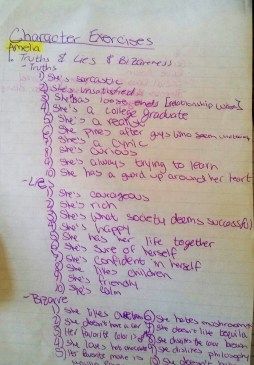 Character Exercises
Amelia
1. Truths & Lies & Bizareness
- Truths
1) She's sarcastic
2) She's uninspired
3) She has loose ends [relationship wise]
4) She's a college graduate
5) She's a realist
6) She pines after guys who seem
7) She's a cynic
8) She's curious
9) She's always trying to learn
10) She has a guard up around her heart
- Lies
1) She's courageous
2) She's rich
3) She's what society deems successful
4) She's happy
5) She has her life together
6) She's sure of herself
7) She's confident in herself
8) She likes children
9) She's friendly
10) She's calm
- Bizarre
1) She likes
6) She hates mushrooms
2) She doesn't have a car
7) She doesn't like tequila
3) Her favorite color is
8) She
4) She loves hot chocolate
9) She dislikes philosophy
5) Her favorite movie is
10) She doesn't